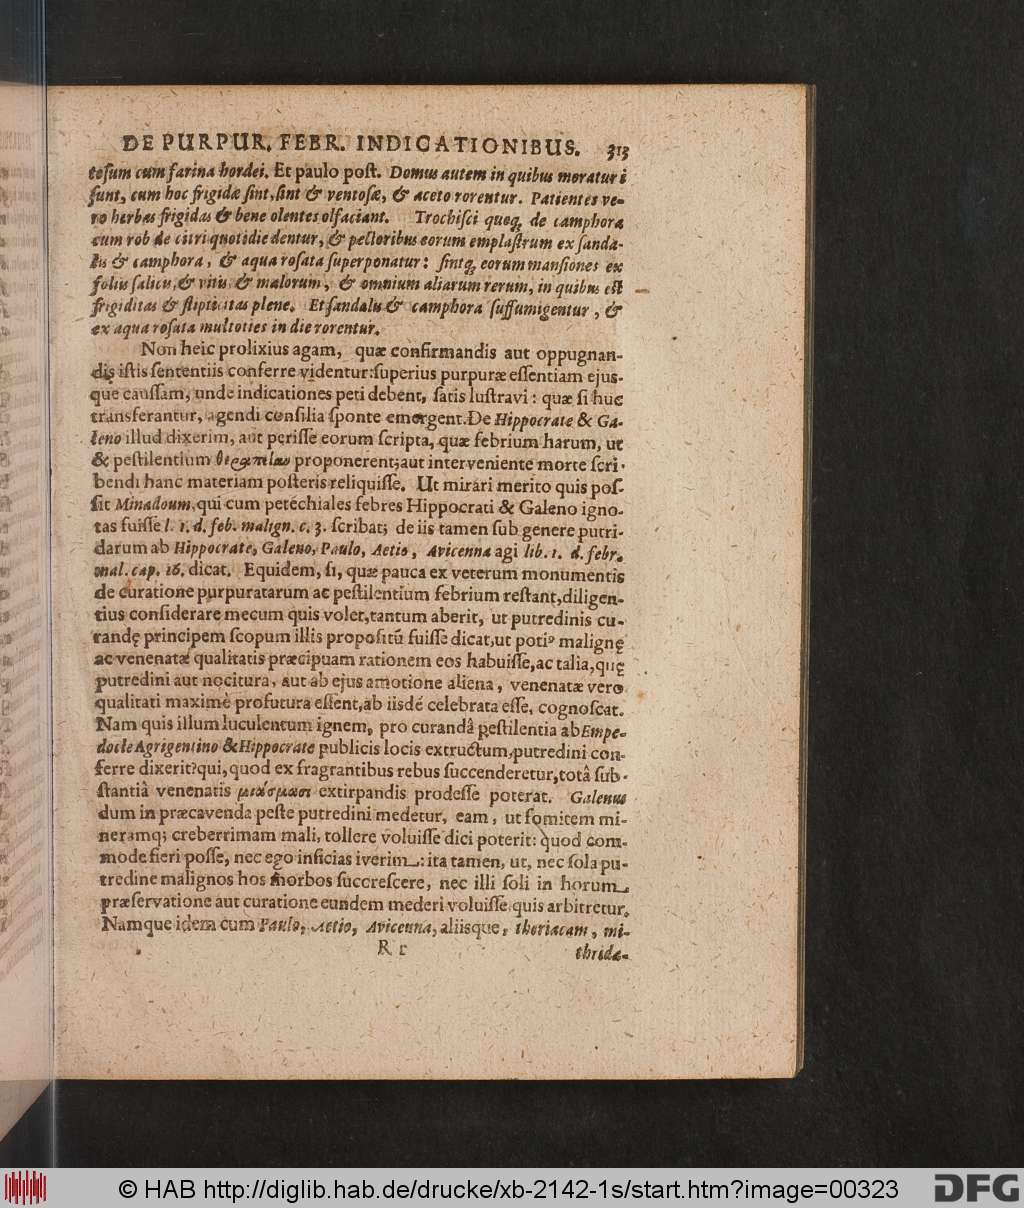 DE PURPUR. FEBR. INDICATIONIBUS. 313
tosum cum farina hordei. Et paulo post. Domus autem in quibus moratur i
sunt, cum hoc frigidæ sint, sint & ventosæ, & aceto rorentur. Patientes ve-
ro herbas frigidas & bene olentes olfaciant. Trochisci quoq; de camphora
cum rob de citri quotidie dentur, & pectoribus eorum emplastrum ex sanda-
lis & camphora, & aqua rosata superponatur: sintq; eorum mansiones ex
foliis salicis, & vitis & malorum, & omnium aliarum rerum, in quibus est
frigiditas & stipticitas plene. Et sandalis & camphora suffumigentur, &
ex aqua rosata multoties in die rorentur.
Non heic prolixius agam, quæ confirmandis aut oppugnan-
dis istis sententiis conferre videntur: superius purpuræ essentiam ejus-
que caussam, unde indicationes peti debent, satis lustravi: quæ si huc
transferantur, agendi consilia sponte emergent. De Hippocrate & Ga-
leno illud dixerim, aut periisse eorum scripta, quæ febrium harum, ut
& pestilentium θεραπείαν proponerent; aut interveniente morte scri-
bendi hanc materiam posteris reliquisse. Ut mirari merito quis pos-
sit Minadoum, qui cum petechiales febres Hippocrati & Galeno igno-
tas fuisse l. 1. d. feb. malign. c. 3. scribat; de iis tamen sub genere putri-
darum ab Hippocrate, Galeno, Paulo, Aetio, Avicenna agi lib. 1. d. febr.
mal. cap. 16. dicat. Equidem, si, quæ pauca ex veterum monumentis
de curatione purpuratarum ac pestilentium febrium restant, diligen-
tius considerare mecum quis volet, tantum aberit, ut putredinis cu-
randę principem scopum illis propositū fuisse dicat, ut poti⁹ malignę
ac venenatæ qualitatis præcipuam rationem eos habuisse, ac talia, quę
putredini aut nocitura, aut ab ejus amotione aliena, venenatæ vero
qualitati maximè profutura essent, ab iisdē celebrata esse, cognoscat.
Nam quis illum luculentum ignem, pro curandâ pestilentia ab Empe-
docle Agrigentino & Hippocrate publicis locis extructum, putredini con-
ferre dixerit? qui, quod ex fragrantibus rebus succenderetur, totâ sub-
stantiâ venenatis μιάσμασι extirpandis prodesse poterat. Galenus
dum in præcavenda peste putredini medetur, eam, ut fomitem mi-
neramq; creberrimam mali, tollere voluisse dici poterit: quod com-
mode fieri posse, nec ego inficias iverim: ita tamen, ut, nec sola pu-
tredine malignos hos morbos succrescere, nec illi soli in horum
præservatione aut curatione eundem mederi voluisse quis arbitretur.
Namque idem cum Paulo, Aetio, Avicenna, aliisque, theriacam, mi-
R r thrida-
© HAB http://diglib.hab.de/drucke/xb-2142-1s/start.htm?image=00323
DFG